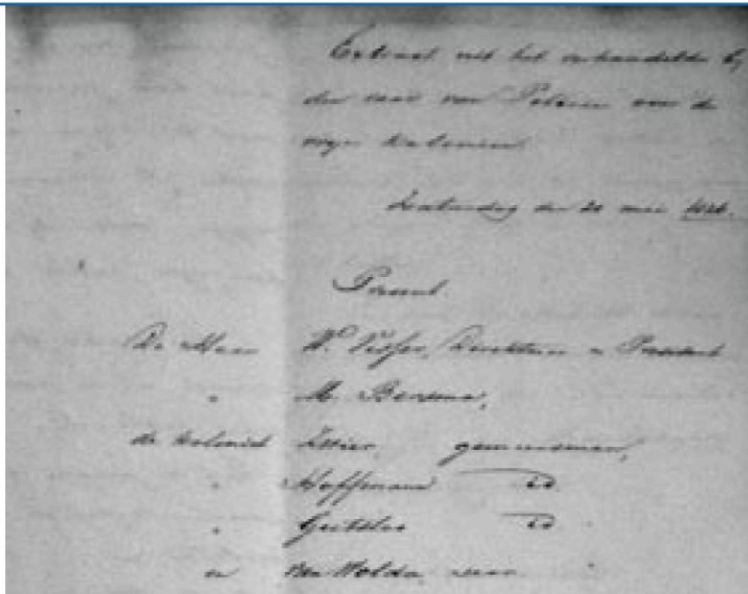 Extract uit het verhandelde bij
den raad van Policie voor de
vrije Kolonien.
Zaturdag den 20 mei
Present.
De Heer W. Visser, Direkteur en President
" M. Bersma,
de kolonist gemeensman,
" Hoffman id.
" id.
en van Wolda